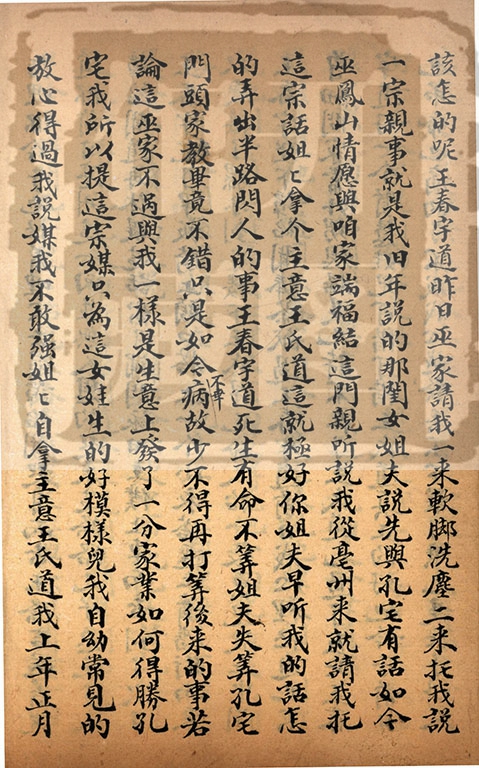 該怎的呢王春宇道昨日巫家請我一來軟脚洗塵二來托我說
一宗親事就是我旧年説的那閨女姐夫説先與孔宅有話如今
巫鳳山情愿與咱家端福結這門親听説我從亳州来就請我托
這宗話姐〻拿个主意王氏道這就極好你姐夫早听我的話怎
的弄出半路閃人的事王春宇道死生有命不筭姐夫失筭孔宅
門頭家教畢竟不錯只是如今不幸病故少不得再打筭後来的事若
論這巫家不過與我一樣是生意上發了一分家業如何得勝孔
宅我所以提這宗媒只為這女娃生的好模樣兒我自幼常見的
放心得過我說媒我不敢强姐〻自拿主意王氏道我上年正月